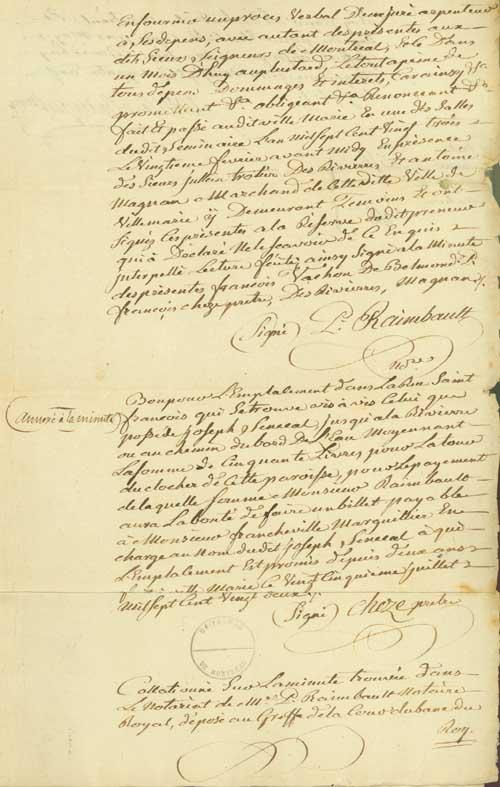 En fournir un procès Verbal D'un juré arpenteur
à Ses depens, avec autant des présentes aux
dits Sieurs, Seigneurs de Montréal, Et ce Dans
un Mois D'huy au plus tard, Le tout a peine de
tous depens Dommages Et interets, Car ainsy &a
promettant &a obligeant &a Renonçant &a
fait Et passé audit Ville Marie En une des Salles
dudit Séminaire L'an Mil Sept Cent Vingt trois
Le Vingtieme fevrier avant Midy En présence
des Sieurs Jullien trotier Des Rivierres Et antoine
Magnan Marchand de Cette ditte Ville de
Villemarie y Demeurant Temoins Et ont
Signés Ces présentes a la Réserve dudit preneur
qui à Déclaré Ne le Scavoir de Ce Enquis
Interpellé Lecture faite ainsy Signé à la Minute
des présentes françois Vachon De Belmond
françois cheze pretre, Des Rivierres, Magnan &
(Signé) P. Raimbault
no.re
(annexé à la minute)
Bon pour L'Emplacement dans La Rue Saint
françois qui Se trouve vis à vis Celui que
possède Joseph Senecal jusqu'a la Rivierre
ou au chemin du bord de L'Eau Moyennant
La Somme de Cinquante Livres pour La tour
du clocher de Cette paroisse, pour Le payement
de laquelle Somme Monsieur Raimbault
aura La bonté de faire un billet payable
à Monsieur francheville Marguillier En
charge au Nom dudit Joseph Senecal à qui
L'Emplacement Est promis depuis deux ans
Ville Marie Le Vingt Cinquieme Juillet
Mil Sept Cent Vingt deux
(Signé) Cheze pretre
Collationné Sur La minute trouvée dans
Le Notariat de Mr. P. Raimbault Notaire
Royal, déposé au Greffe de la Cour du banc du
Roy.